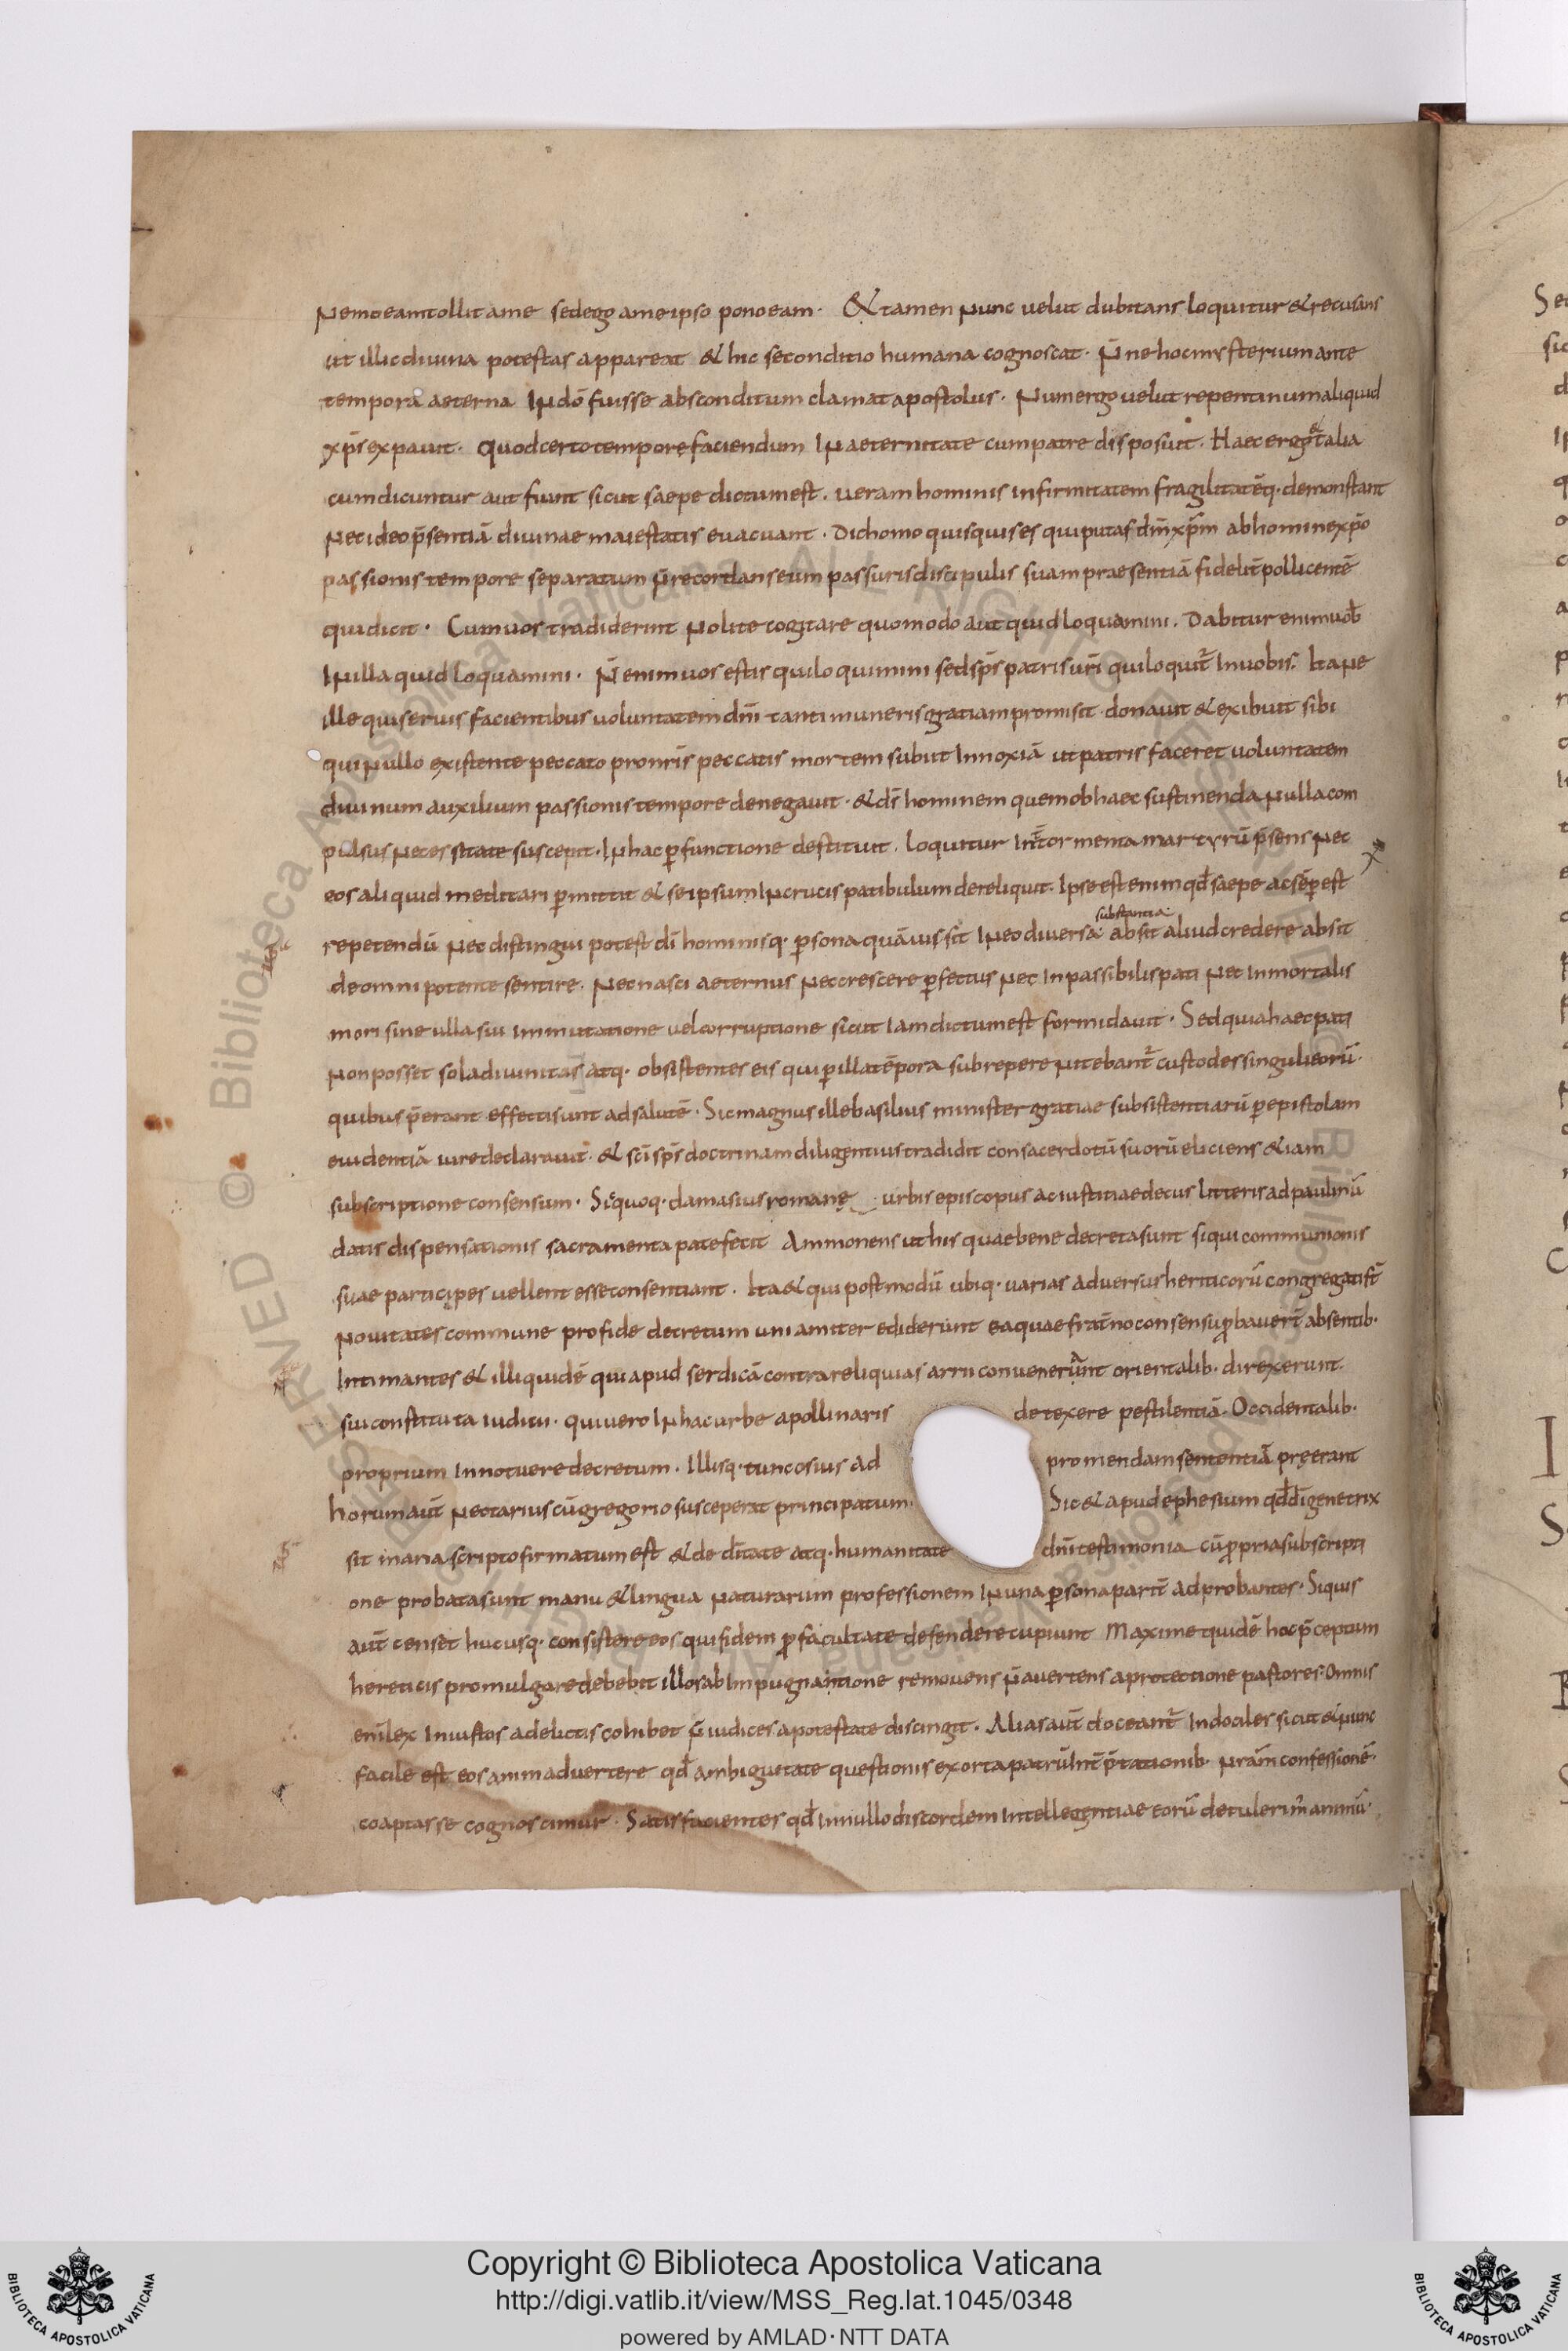 Nemo eam tollit a me sed ego a me ipso pono eam · & tamen nunc velut dubitans loquitur & recusans
ut illic divina potestas appareat & hic se conditio humana cognoscat · N̄ ne hoc mysterium ante
tempora aeterna In dō fuisse absconditum clamat apostolus · Num ergo velut repentinum aliquid
xp̄s expavit · quod certo tempore faciendum In aeternitate cum patre disposuit · Haec ergo et alia
cum dicuntur aut fiunt sicut saepe dictum est · veram hominis infirmitatem fragilitatēq· demonstant
Nec ideo p̄sentiā divinae maiestatis evacuant · Dic homo quisquis es qui putas dm̄ xp̄m ab homine xp̄o
passionis tempore separatum n̄ recordans eum passuris discipulis suam praesentiā fidelit̄ pollicentē
qui dicit · Cum vos tradiderint Nolite cogitare quomodo aut quid loquamini · Dabitur enim vob̄
In illa quid loquamini · N̄ enim vos estis qui loquimini sed sp̄s patris ur̄i qui loquit̄ In vobis · Itane
ille qui servis facientibus voluntatem dn̄i tanti muneris gratiam promisit · donavit & exibuit sibi
qui nullo existente peccato pro nr̄is peccatis mortem subiit Innoxiā ut patris faceret voluntatem
divinum auxilium passionis tempore denegavit · & dī hominem quem ob haec sustinenda nulla com
pulsus necessitate suscepit · In hac p̄functione destituit · loquitur Int̄ tormenta martyrū p̄sens nec
eos aliquid meditari p̄mittit & se ipsum In crucis patibulum dereliquit · Ipse est enim qd̄ saepe ac sēp est
substantia
repetendū Nec distingui potest dī hominisq· p̄sona quāvis sit In eo diversa absit aliud credere absit
de omnipotente sentire · Nec nasci aeternus nec crescere p̄fectus nec Inpassibilis pati nec Inmortalis
mori sine ulla sui immutatione vel corruptione sicut Iam dictum est formidavit · Sed quia haec pati
non posset sola divinitas atq· obsistentes eis qui p̄ illa tēpora subrepere nitebant̄ custodes singuli eorū
quibus p̄erant effecti sunt ad salutē · Sic magnus ille basilius minister gratiae subsistentiarū p̄ epistolam
evidentiā iure declaravit · & sc̄i sp̄s doctrinam diligentius tradidit consacerdotū suorū eliciens etiam
subscriptione consensum · Sic quoq· damasius romanę urbis episcopus ac iustitiae decus litteris ad paulinū
datis dispensationis sacramenta patefecit Ammonens ut his quae bene decreta sunt siqui communionis
suae participes vellent esse consentiant · Ita & qui postmodū ubiq· varias adversus heriticorū congregati st̄
novitates commune pro fide decretum uniamiter ediderunt ea quae frat̄no consensu p̄bavert̄ absentib·
Intimantes & illi quidē qui apud serdicā contra reliquias arrii convenerant orientalib· direxerunt
sui constituta iudicii · qui vero In hac urbe apollinaris detexere pestilentiā · Occidentalib·
proprium Innotuere decretum · Illisq· tunc osius ad promendam sententiā pręerant
horum aut̄ nectarius cū gregorio susceperat principatum · Sic & apud ephesium qd̄ dī genetrix
sit maria scripto firmatum est & de dītate atq· humanitate dn̄i testimonia cū p̄pria subscripti
one probata sunt manu & lingua naturarum professionem In una p̄sona parit̄ adprobantes · Siquis
aut̄ censet hucusq· consistere eos qui fidem p̄ facultate defendere cupiunt Maxime quidē hoc p̄ceptum
hereticis promulgare debebit illos ab Impugnantione removens n̄ avertens a protectione pastores · Omnis
enī lex Iniustos a delictis cohibet n̄ iudices a potestate discingit · Alias aut̄ doceant̄ Indociles sicut & nunc
facile est eos animadvertere qd̄ ambiguetate questionis exorta patrū Int̄p̄tationib· nrām confessionē
coaptasse cognoscimur · Satisfacientes qd̄ In nullo discordem Intellegentiae eorū detulerim̄ animū ·
Copyright © Biblioteca Apostolica Vaticana
http://digi.vatlib.it/view/MSS_Reg.lat.1045/0348
powered by AMLAD·NTT DATA